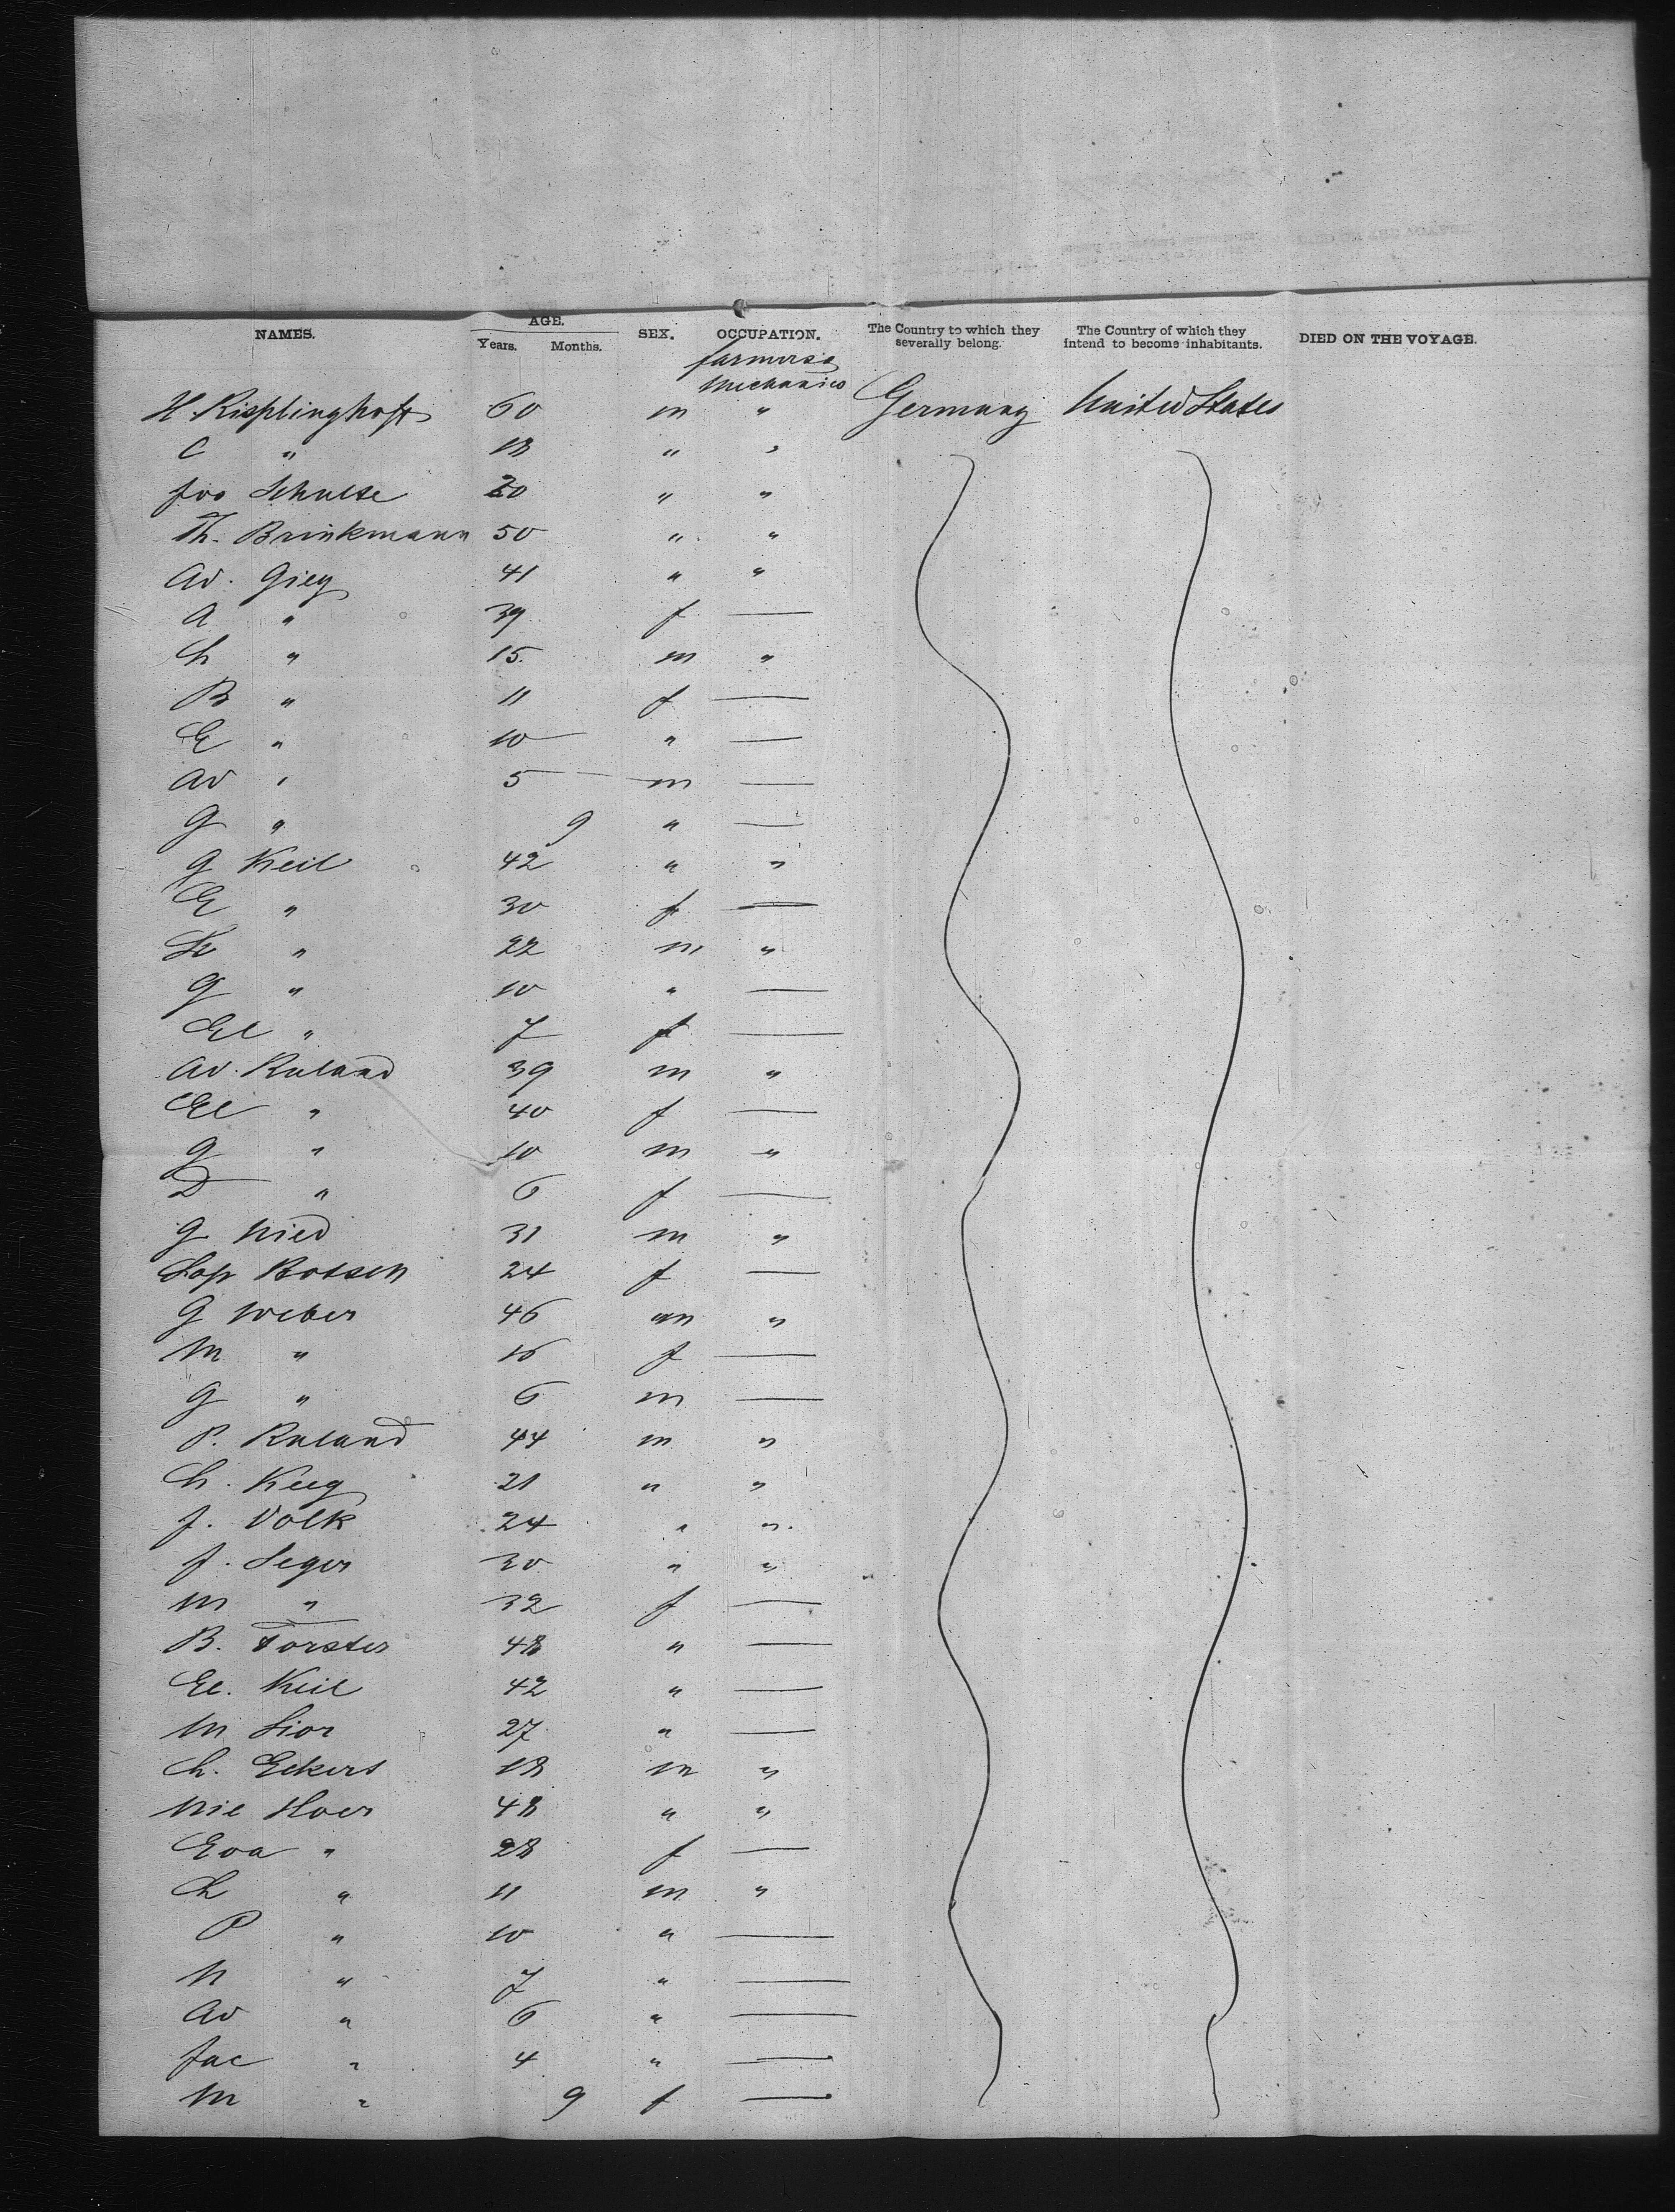 NAMES. AGE. SEX. OCCUPATION. The Country to which they severally belong. The Country of which they intend to become inhabitants. DIED ON THE VOYAGE.
Years. Months.
farmers &
mechanics
H. Kipplinghoft 60 m " Germany United States
C " 18 " "
Jos Schulte 20 " "
Th. Brinkmann 50 " "
Ad. Gieg 41 " "
A " 39 f —
Ch " 15 m "
B " 11 f —
E " 10 " —
Ad " 5 m —
G " 9 " —
G Keil 42 " "
E " 30 f —
" 22 m "
G " 10 " —
El " 7 f —
Ad. Ruland 39 m "
El " 40 f —
G " 10 m "
D " 6 f —
G Nied 31 m "
Sop Botsen 24 f —
G Weber 46 m "
M " 16 f —
G " 6 m —
P. Ruland 44 m "
Ch. Keeg 21 " "
J. Volk 24 " "
J. Seger 30 " "
M " 32 f —
B. Forster 48 " —
El. Keil 42 " —
M Lior 27 " —
Ch. Eckert 18 m "
Nic Hoer 48 " "
Eva " 28 f —
Ch " 11 m "
P " 10 " —
N " 7 " —
Ad " 6 " —
Jac " 4 " —
M " 9 f —